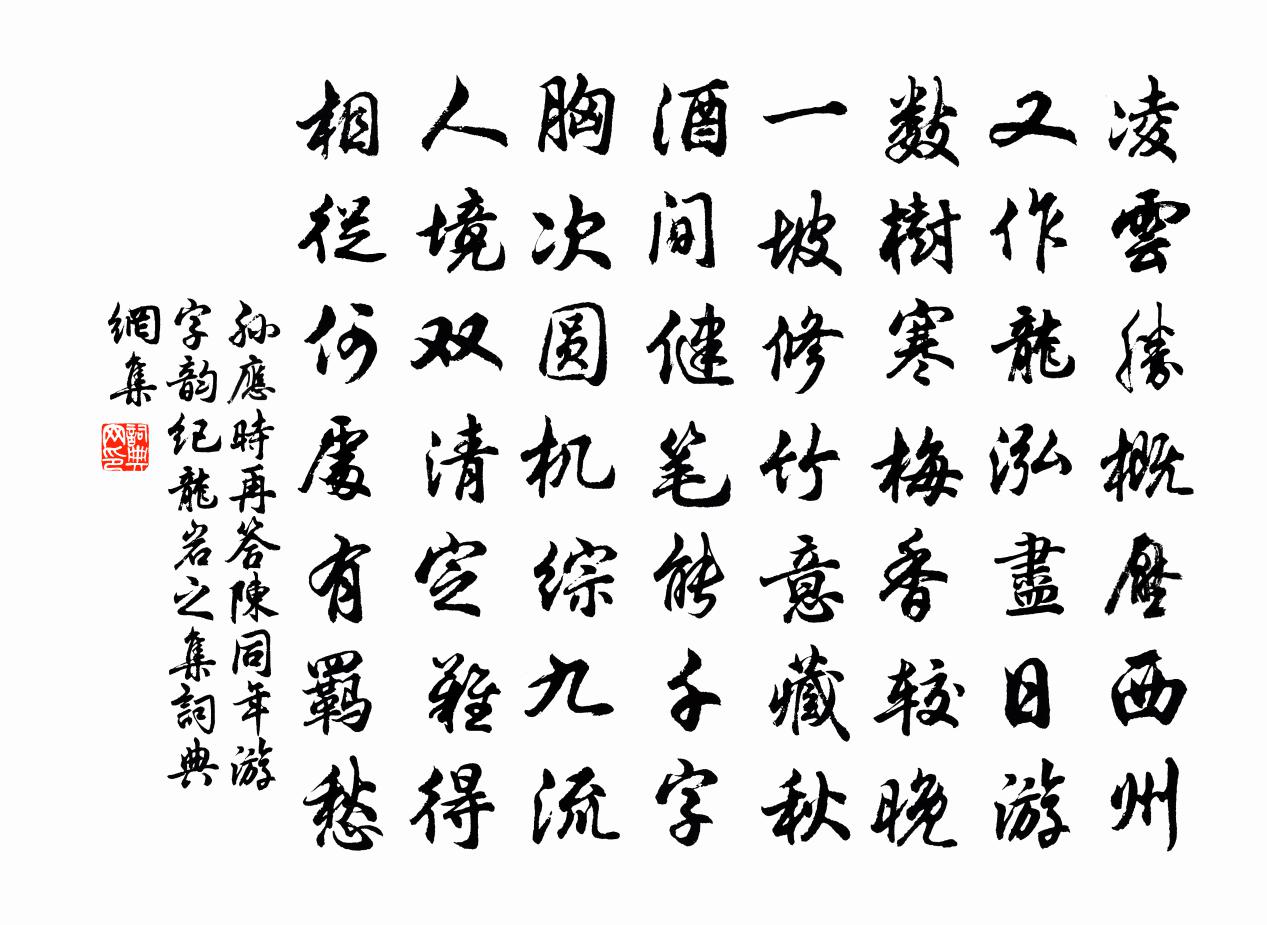 凌雲勝概壓西州
又作龍泓盡日游
数樹寒梅香较晚
一坡修竹意藏秋
酒间健笔能千字
胸次圆机综九流
人境双清定難得
相從何處有羁愁
孙應時再答陳同年游
字韵纪龍岩之集詞典
網集